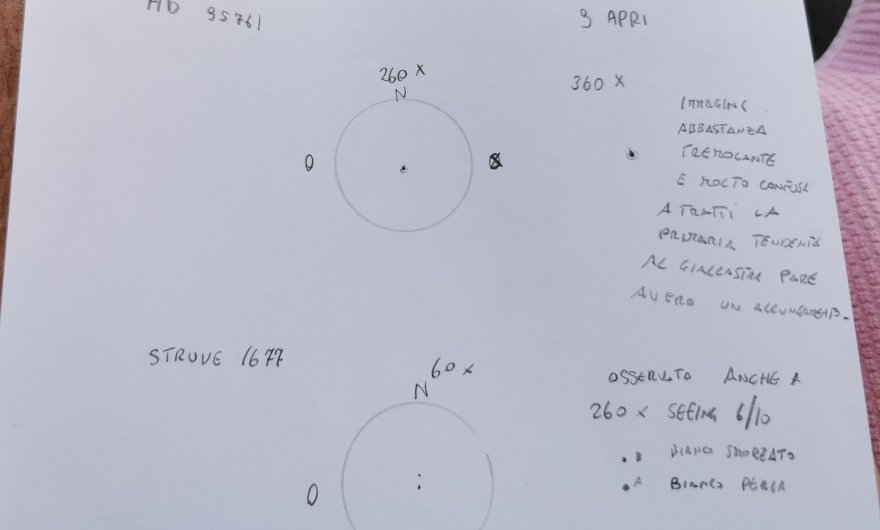 HD 95761
9 APRI
260 X
N
O
360 X
IMMAGINE
ABBASTANZA
TREMOLANTE
E MOLTO CONFUSA
A TRATTI LA
PRIMARIA TENDENTE
AL GIALLASTRA PARE
AVERE UN ALLUNGAMENTO
STRUVE 1677
60 X
N
O
OSSERVATO ANCHE A
260 X SEEING 6/10
B BIANCO SMORZATO
A BIANCO PERLA